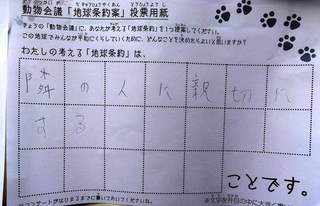 動物会議「地球条約案」投票用紙
きょうの「動物会議」に、あなたが考える「地球条約」を1つ提案してください。
この地球でみんなが平和にくらしていくために、どんなことを決めたらよいと思いますか?
わたしの考える「地球条約」は、
隣の人に親切に
する
ことです。